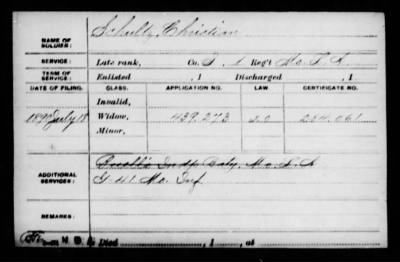 NAME OF SOLDIER: Schultz, Christian
SERVICE: Late rank, Co. I, 1 Reg't Mo. L. A.
TERM OF SERVICE: Enlisted , 1 Discharged , 1
DATE OF FILING. CLASS. APPLICATION NO. LAW CERTIFICATE NO.
Invalid,
1890 July 18 Widow, 439.273 254.061
Minor,
ADDITIONAL SERVICES: Buell's Indp. Baty. Mo. L. A
G 41 Mo. Inf
REMARKS:
Died , 1 , at